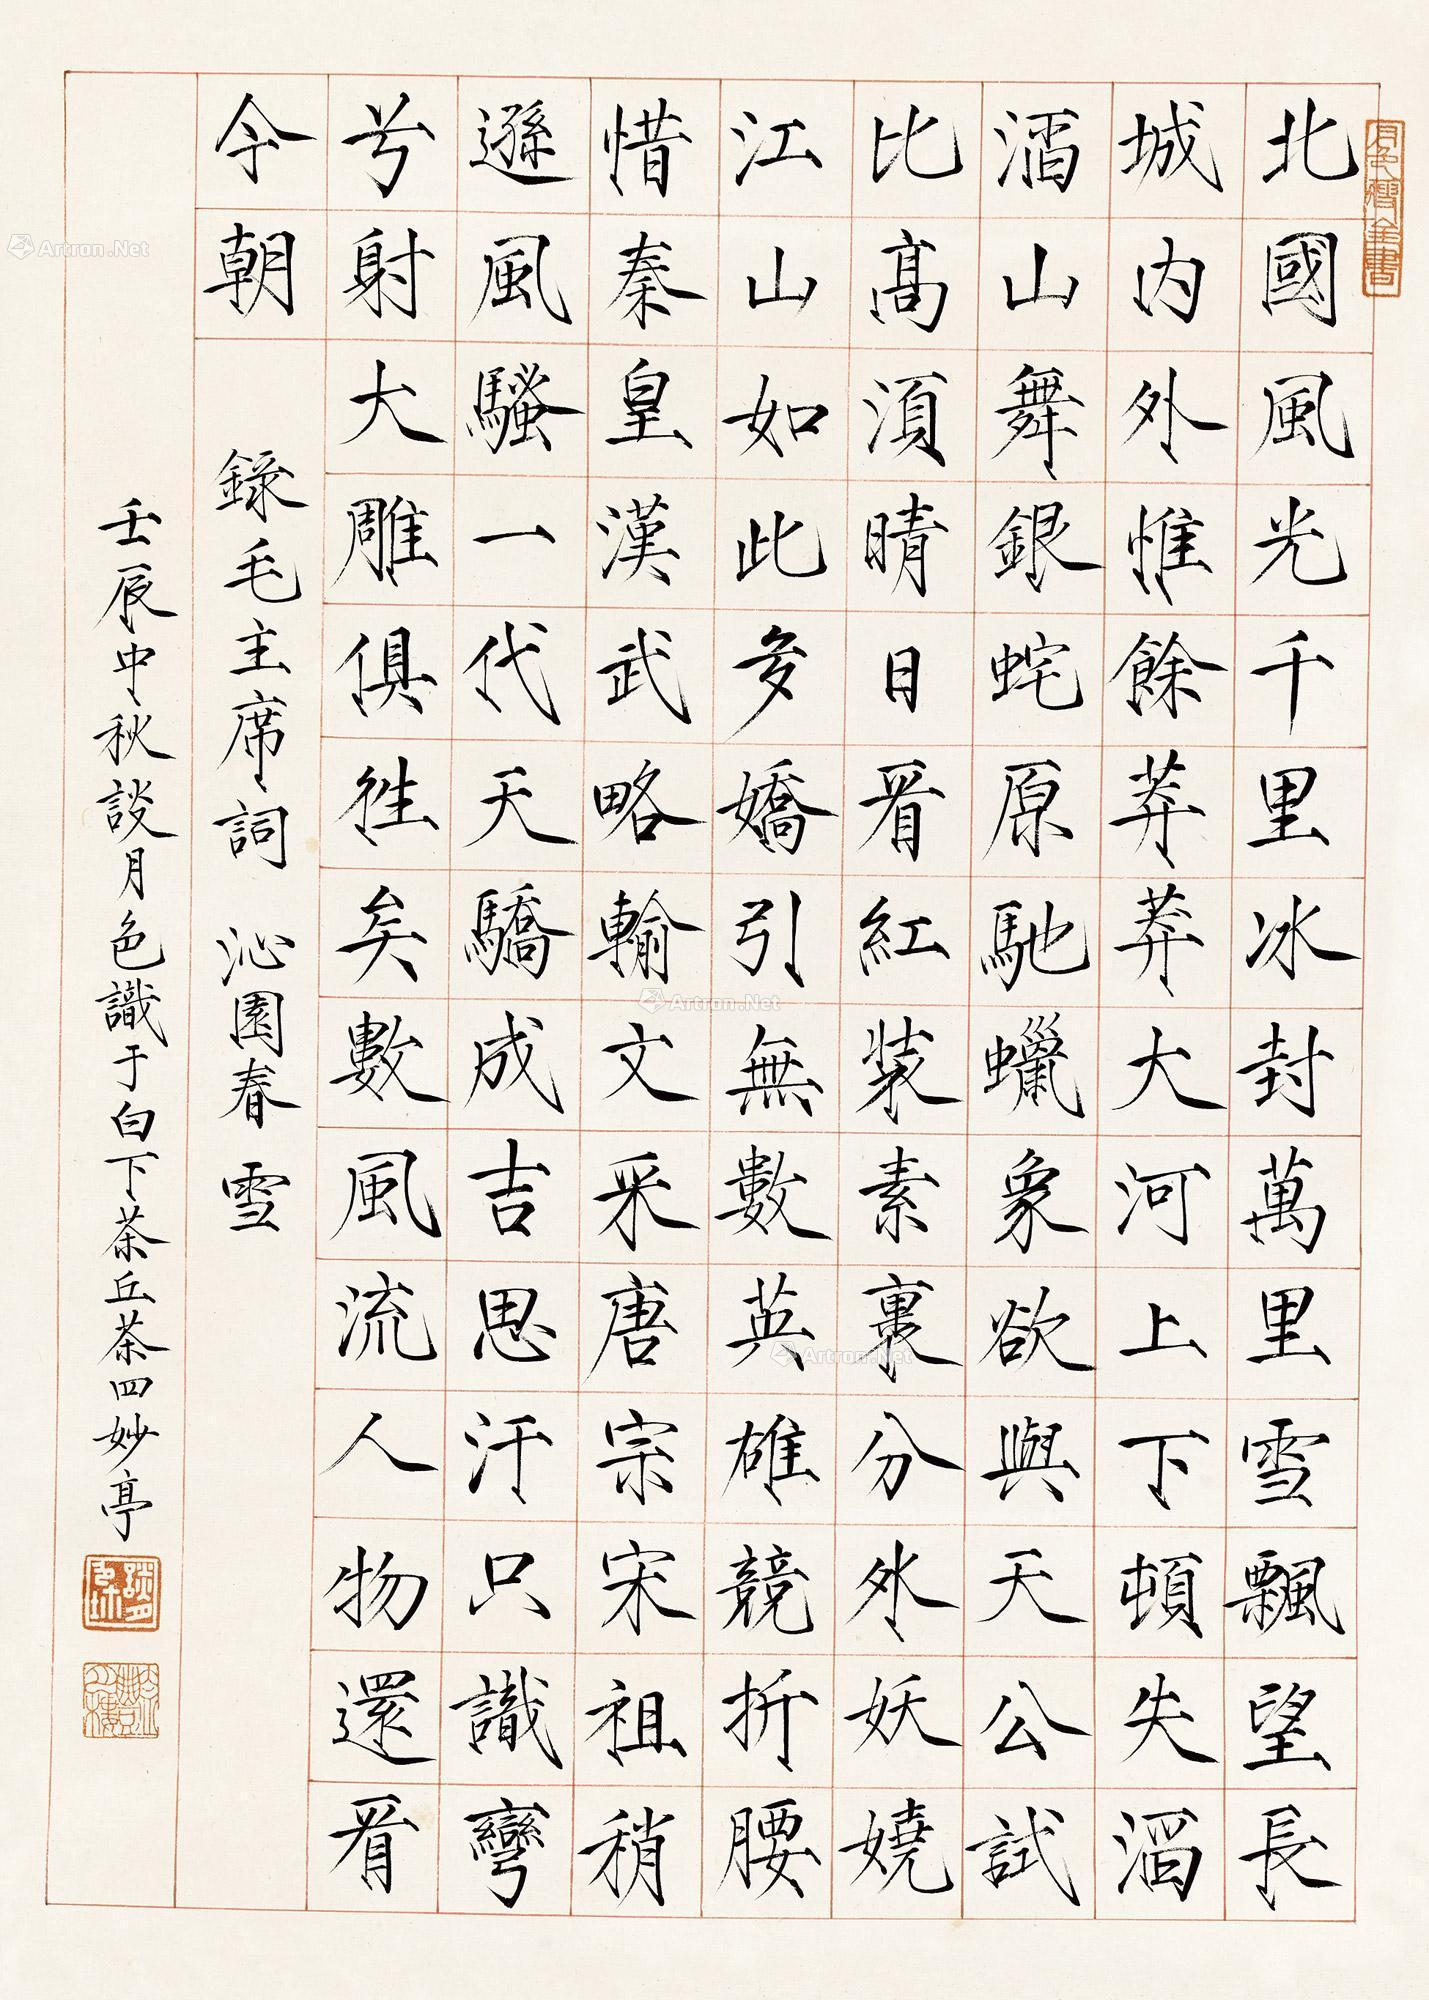 北國風光千里冰封萬里雪飄望長
城內外惟餘莽莽大河上下頓失滔
滔山舞銀蛇原馳蠟象欲與天公試
比高須晴日看紅裝素裹分外妖嬈
江山如此多嬌引無數英雄競折腰
惜秦皇漢武略輸文采唐宗宋祖稍
遜風騷一代天驕成吉思汗只識彎
弓射大雕俱往矣數風流人物還看
今朝
錄毛主席詞 沁園春 雪
壬辰中秋談月色識于白下茶丘茶四妙亭
月色瘦金書
Artron.Net
Artron.Net
Artron.Net